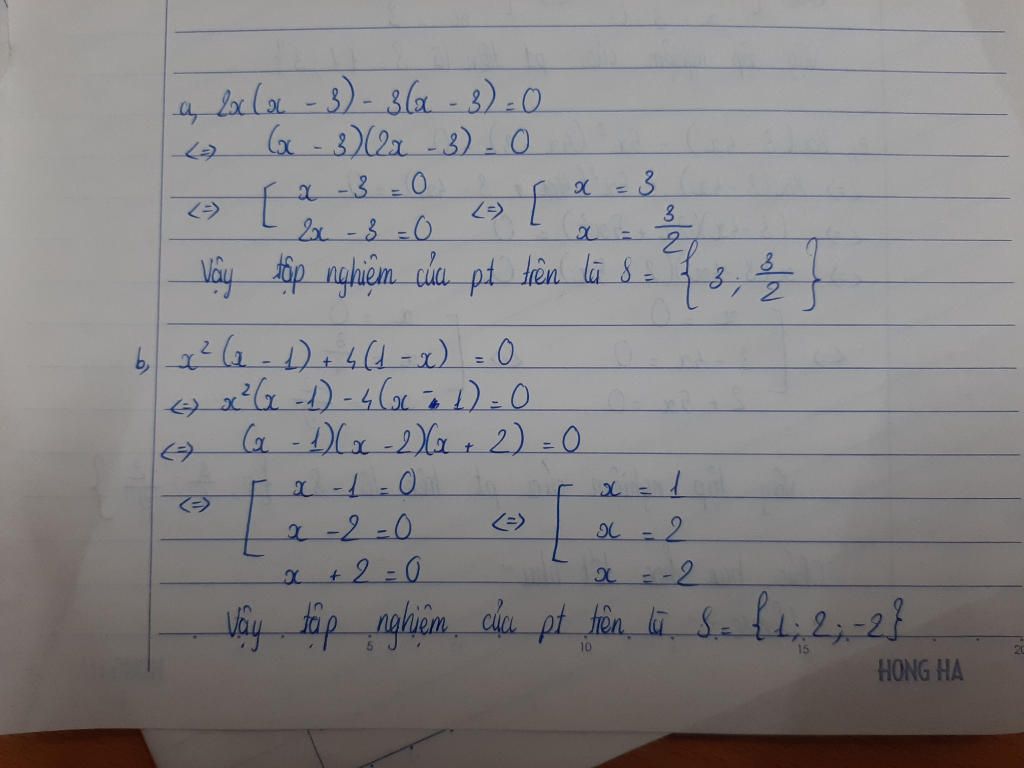 a, 2x(x - 3) - 3(x - 3) = 0
<=> (x - 3)(2x - 3) = 0
<=> [ x - 3 = 0 <=> [ x = 3
2x - 3 = 0 x = 3/2
Vậy tập nghiệm của pt trên là S = { 3 ; 3/2 }
b, x² (x - 1) + 4(1 - x) = 0
<=> x²(x - 1) - 4(x - 1) = 0
<=> (x - 1)(x - 2)(x + 2) = 0
<=> [ x - 1 = 0 <=> [ x = 1
x - 2 = 0 x = 2
x + 2 = 0 x = -2
Vậy tập nghiệm của pt trên là S = { 1 ; 2 ; -2 }
5 10 15 20
HONG HA